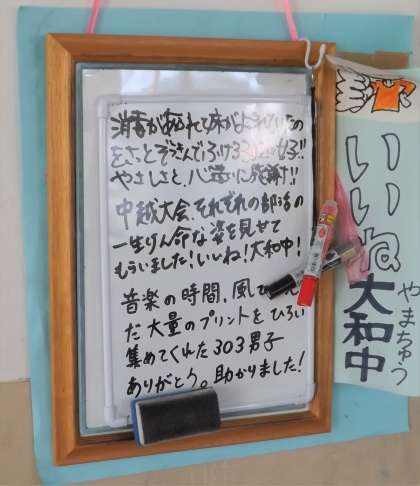 消毒があふれて床がよごれていたの
をさっとぞうきんでふける302の女子!!
やさしさと、心遣いに感謝!!
中越大会、それぞれの部活の
一生けん命な姿を見せて
もらいました!いいね!大和中!
音楽の時間、風で
だ大量のプリントをひろい
集めてくれた303男子
ありがとう。助かりました!
いいね
やまちゅう
大和中